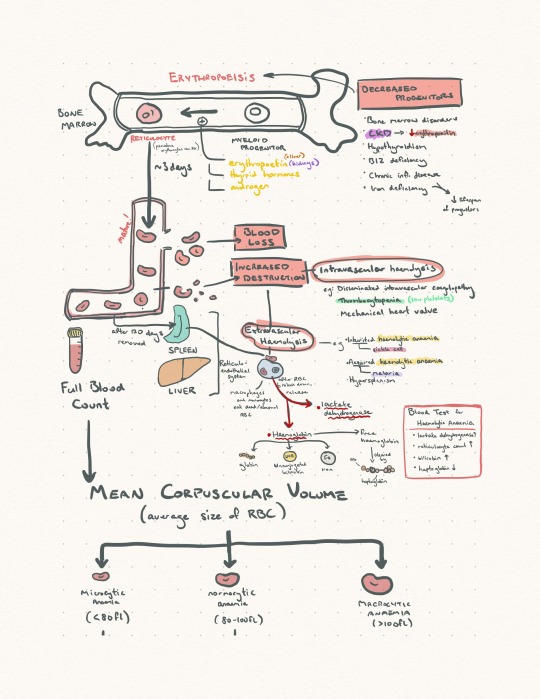 ERYTHROPOEISIS
DECREASED
PROGENITORS
BONE
MARROW
RETICULOCYTE
MYELOID
PROGENITOR
(liver)
erythropoetin (kidneys)
thyroid hormones
androgen
~3 days
• Bone marrow disorders
• CKD → ↓ erythropoetin
• Hypothyroidism
• B12 deficiency
• Chronic inf. disease
• Iron deficiency
↓ lifespan
of progenitors
mature!
BLOOD
LOSS
INCREASED
DESTRUCTION
Intravascular haemolysis
eg: Disseminated intravascular coagulopathy
Thrombocytopenia (low platelets)
Mechanical heart valve
after 120 days
removed
SPLEEN
LIVER
Extravascular
Haemolysis
e.g
• Inherited haemolytic anaemia
sickle cell
• Acquired haemolytic anaemia
malaria
• Hypersplenism
Reticulo-
endothelial
system
macrophages
and monocytes
eat dead/abnormal
RBC
after RBC
broken down,
release
• lactate
dehydrogenase
• Haemoglobin
Free
haemoglobin
globin
Unconjugated
bilirubin
Fe
iron
cleared
by
haptoglobin
Full Blood
Count
Blood Test for
Haemolytic Anaemia
• lactate dehydrogenase↑
• reticulocyte count ↑
• bilirubin ↑
• haptoglobin ↓
MEAN CORPUSCULAR VOLUME
(average size of RBC)
Microcytic
Anaemia
(<80fl)
normocytic
anaemia
(80-100fL)
MACROCYTIC
ANAEMIA
(>100fL)